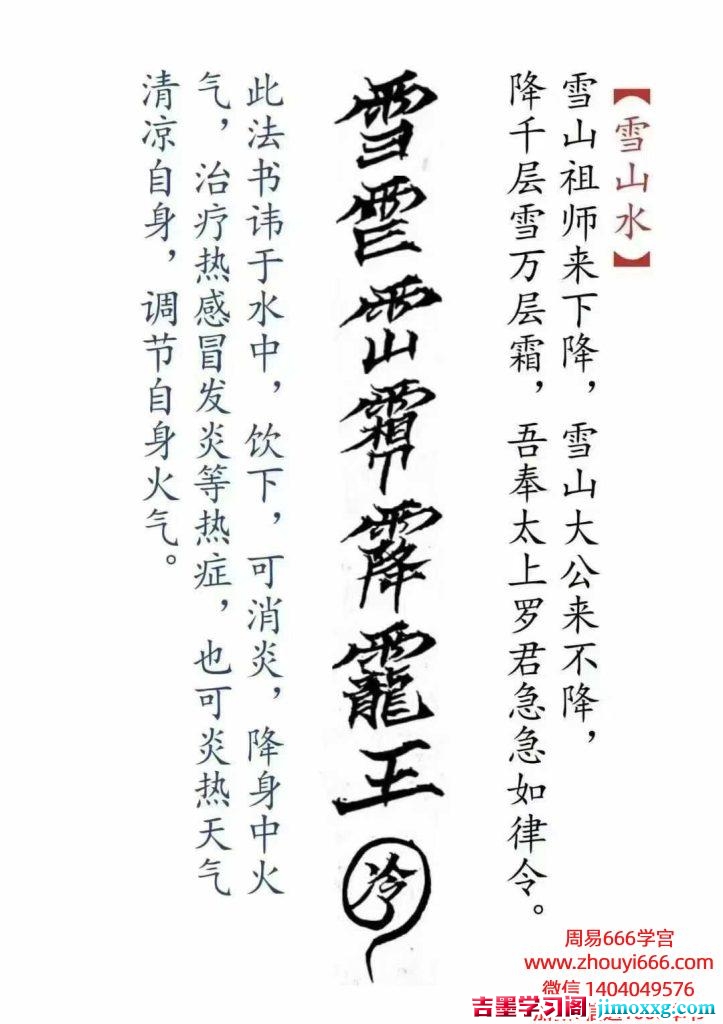 【雪山水】
雪山祖师来下降，雪山大公来不降，
降千层雪万层霜，吾奉太上罗君急急如律令。
雪靇王冷
此法书讳于水中，饮下，可消炎，降身中火
气，治疗热感冒发炎等热症，也可炎热天气
清凉自身，调节自身火气。
周易666学宫
www.zhouyi666.com
微信 1404049576
吉墨学习阁：jimoxxg.com